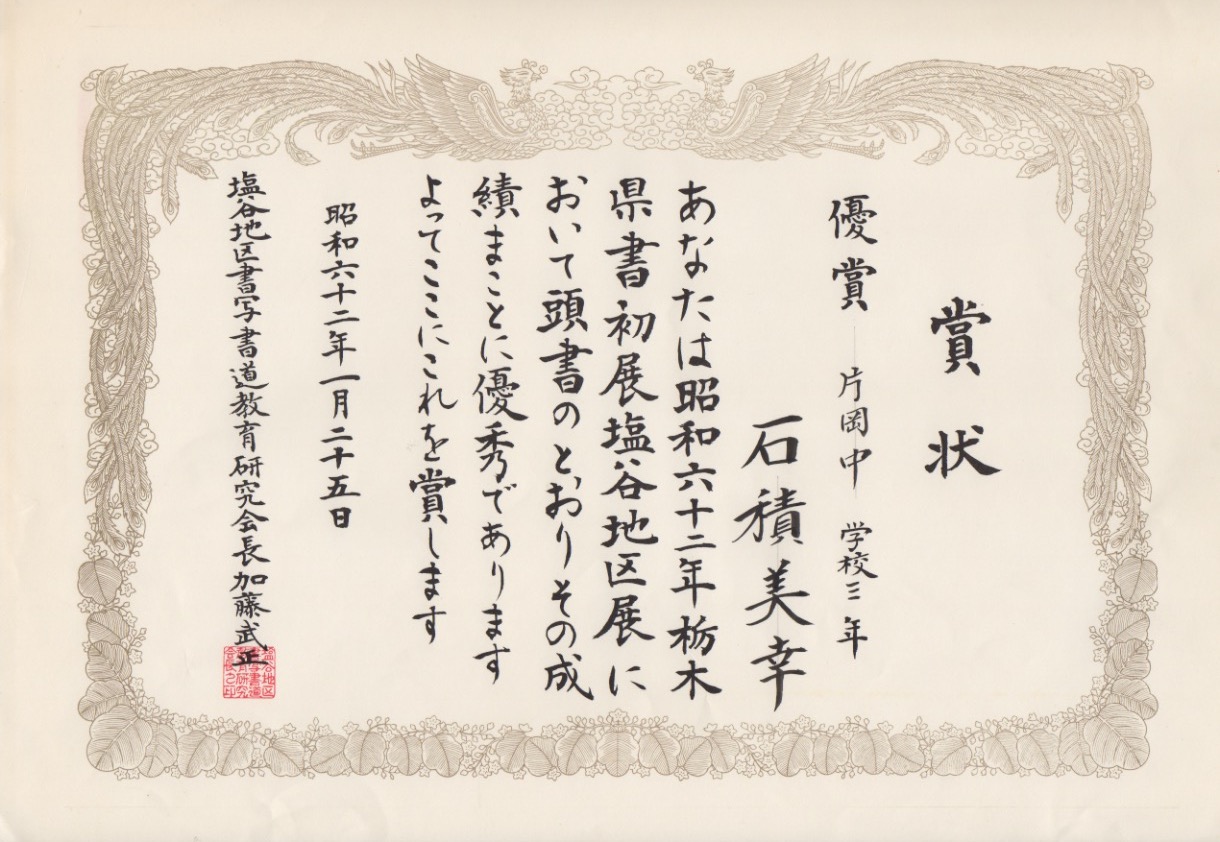 賞状
優賞 片岡中 学校三年
石積美幸
あなたは昭和六十二年栃木
県書初展塩谷地区展に
おいて頭書のとおりその成
績まことに優秀であります
よってここにこれを賞します
昭和六十二年一月二十五日
塩谷地区書写書道教育研究会長加藤武正